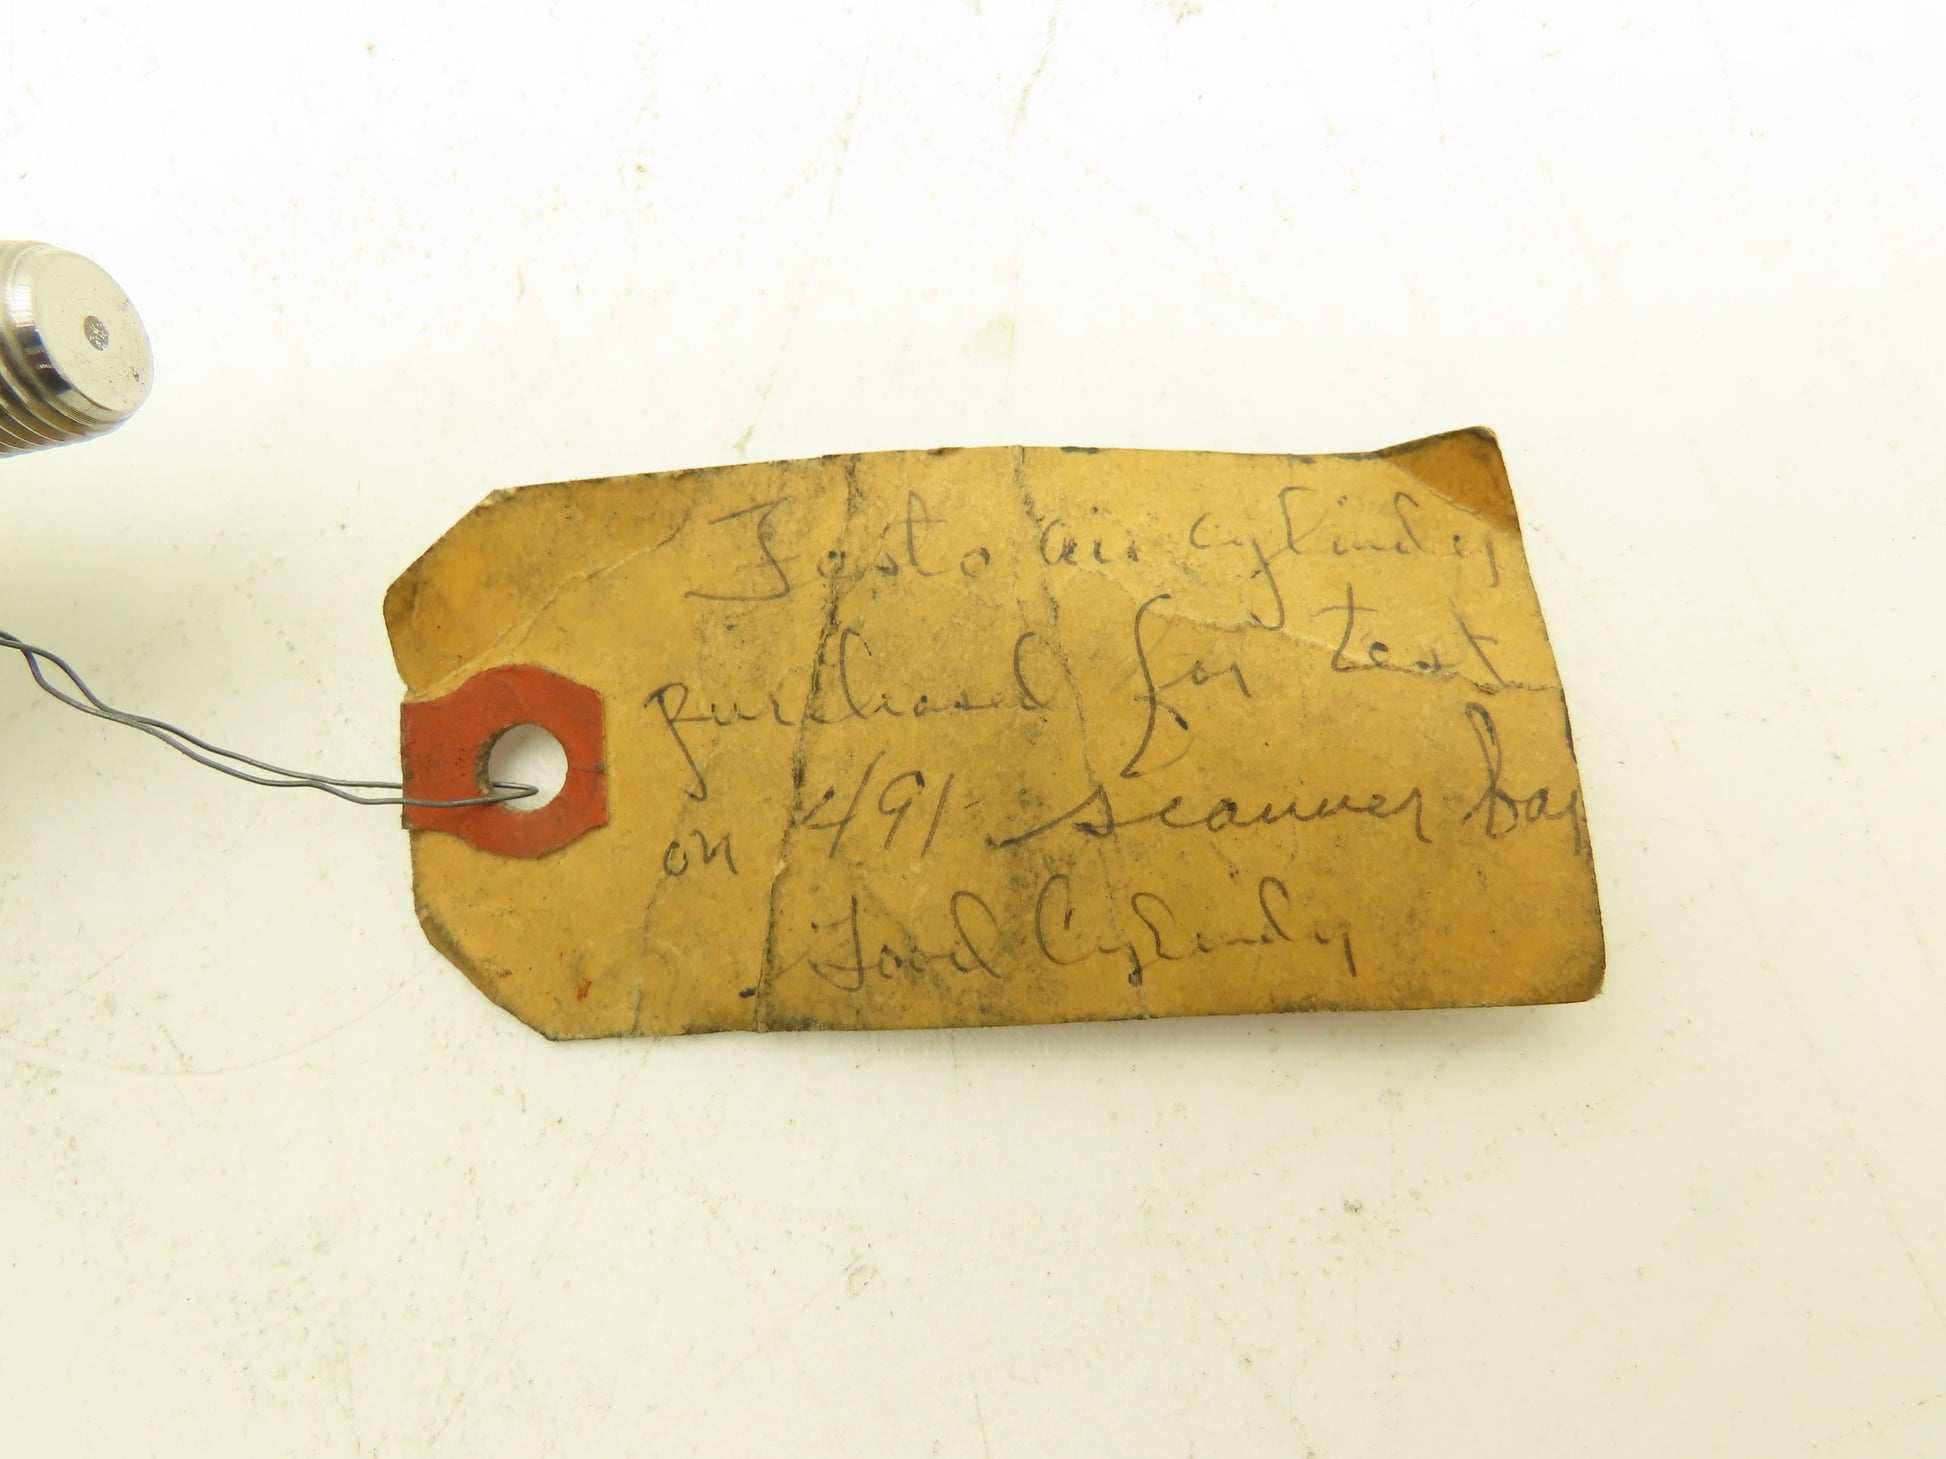 Festo air cylinder
purchased for test
on 491 scanner bay
Good Cylinder